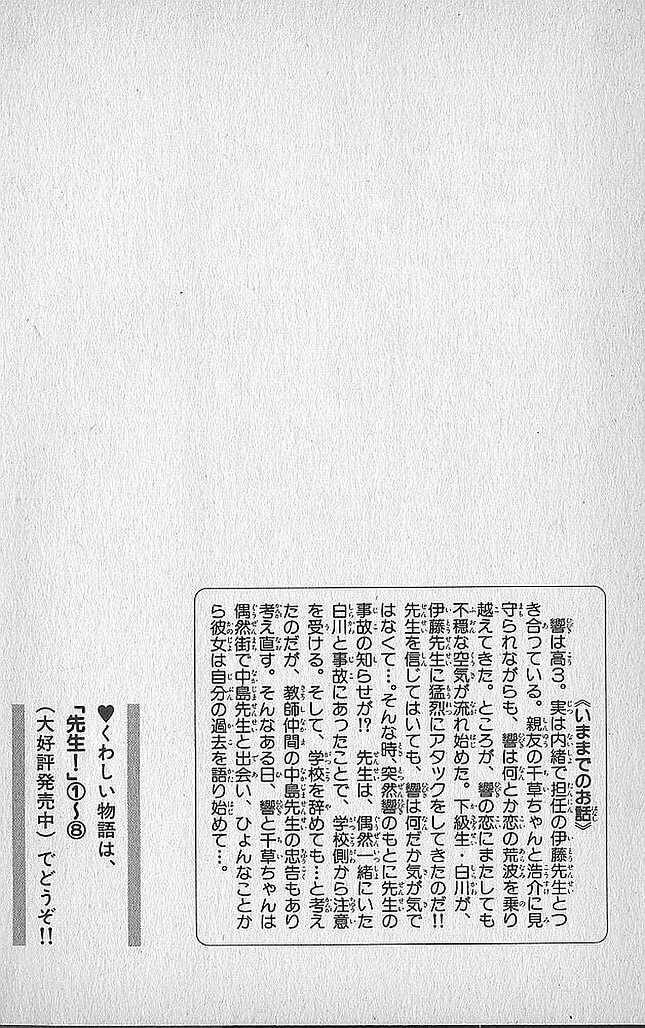 《いままでのお話》
響は高3。実は内緒で担任の伊藤先生とつ
き合っている。親友の千草ちゃんと浩介に見
守られながらも、響は何とか恋の荒波を乗り
越えてきた。ところが、響の恋にまたしても
不穏な空気が流れ始めた。下級生・白川が、
伊藤先生に猛烈にアタックをしてきたのだ!!
先生を信じてはいても、響は何だか気が気で
はなくて…。そんな時、突然響のもとに先生の
事故の知らせが!? 先生は、偶然一緒にいた
白川と事故にあったことで、学校側から注意
を受ける。そして、学校を辞めても…と考え
たのだが、教師仲間の中島先生の忠告もあり
考え直す。そんなある日、響と千草ちゃんは
偶然街で中島先生と出会い、ひょんなことか
ら彼女は自分の過去を語り始めて…。
♥くわしい物語は、
「先生！」①〜⑧
（大好評発売中）でどうぞ!!